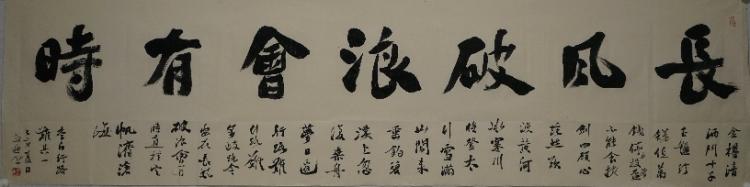 長風破浪會有時
金樽清
酒斗十千
玉盤珍
羞值萬
錢停杯投箸
不能食拔
劍四顧心
茫然欲
渡黃河
冰塞川
將登太
行雪滿
山閒來
垂釣碧
溪上忽
復乘舟
夢日邊
行路難
行路難
多歧路今
安在長風
破浪會有
時直挂雲
帆濟滄
海
李白行路
難其一